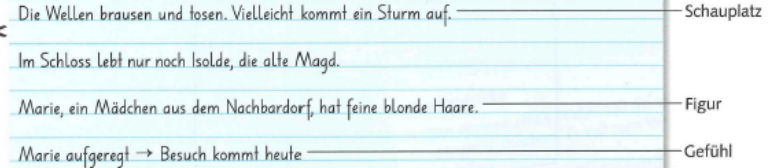 Die Wellen brausen und tosen. Vielleicht kommt ein Sturm auf. Schauplatz
Im Schloss lebt nur noch Isolde, die alte Magd.
Marie, ein Mädchen aus dem Nachbardorf, hat feine blonde Haare. Figur
Marie aufgeregt → Besuch kommt heute Gefühl